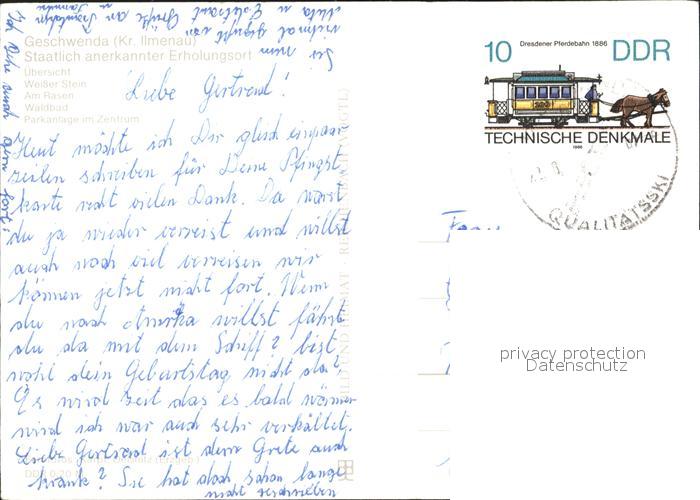 Geschwenda (Kr. Ilmenau)
Staatlich anerkannter Erholungsort
Übersicht
Weißer Stein
Am Rasen
Waldbad
Parkanlage im Zentrum
Liebe Gertraud!
Heut möchte ich Dir gleich einpaar
zeilen schreiben für Deine Pfingst
karte recht vielen Dank. Da warst
du ja wieder verreist und willst
auch noch viel verreisen wir
können jetzt nicht fort. Wenn
du nach Amerika willst fährst
du da mit dem Schiff? bist
wohl dein Geburtstag nicht da?
Es wird zeit das es bald wärmer
wird ich war auch sehr erkältet.
Liebe Gertraud ist denn Grete auch
krank? Sie hat doch schon lange
nicht geschrieben
Sei nun
vielmal gegrüßt von
Grüße an
10
Dresdener Pferdebahn 1886
DDR
TECHNISCHE DENKMALE
1986
QUALITÄTSSKI
Frau
privacy protection
Datenschutz